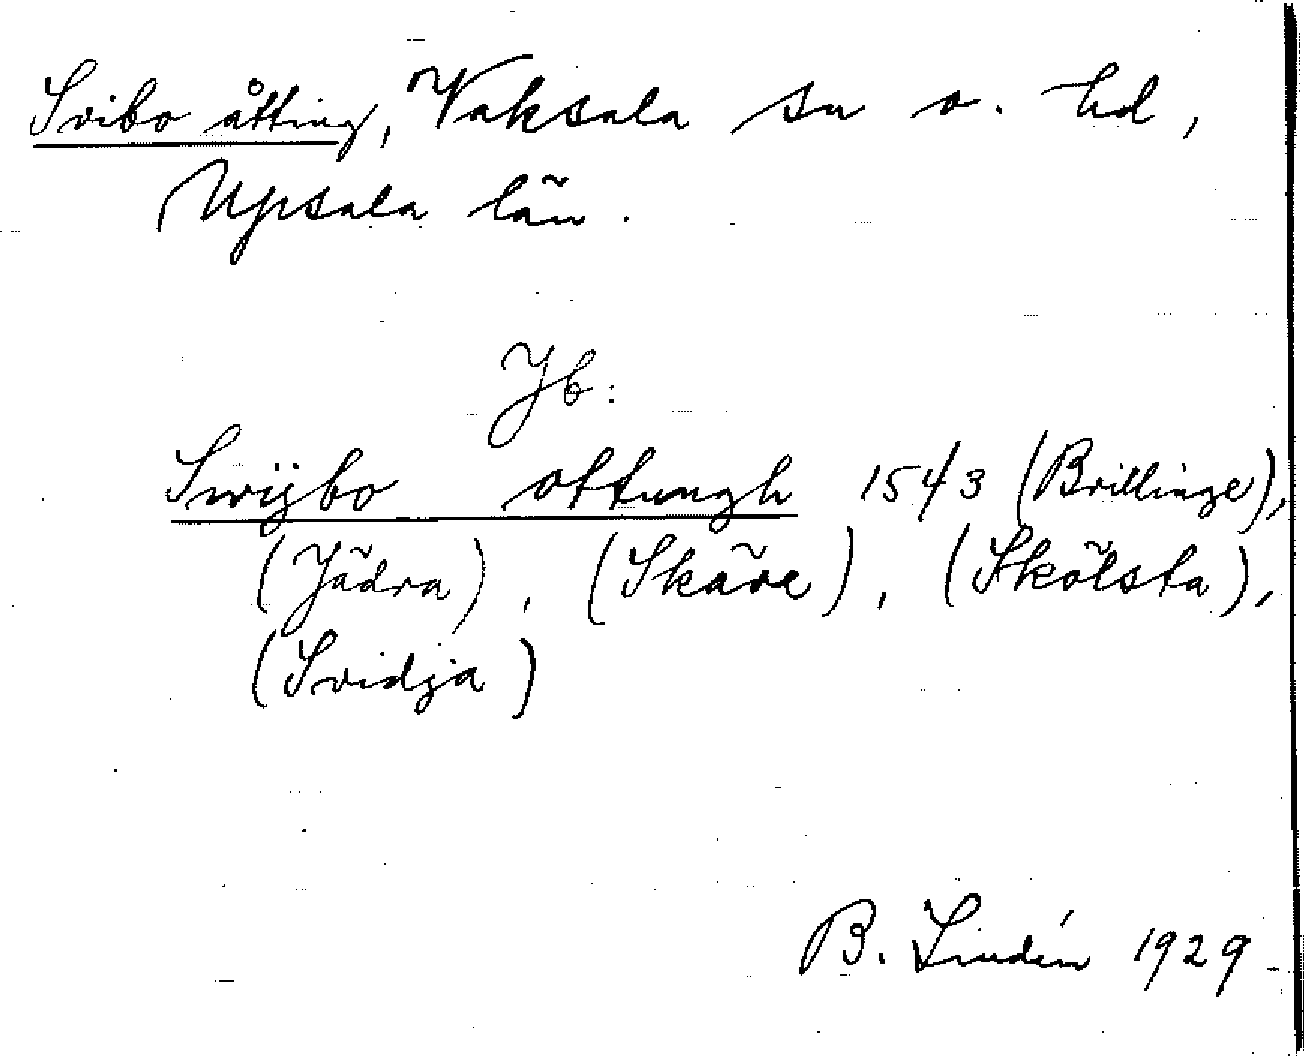 Svibo åtting, Vaksala sn o. hd,
Upsala län.
Jb:
Swijbo ottungh 1543 (Brillinge),
(Jädra), (Skäre), (Skölsta),
(Svidja)
B. Lindén 1929